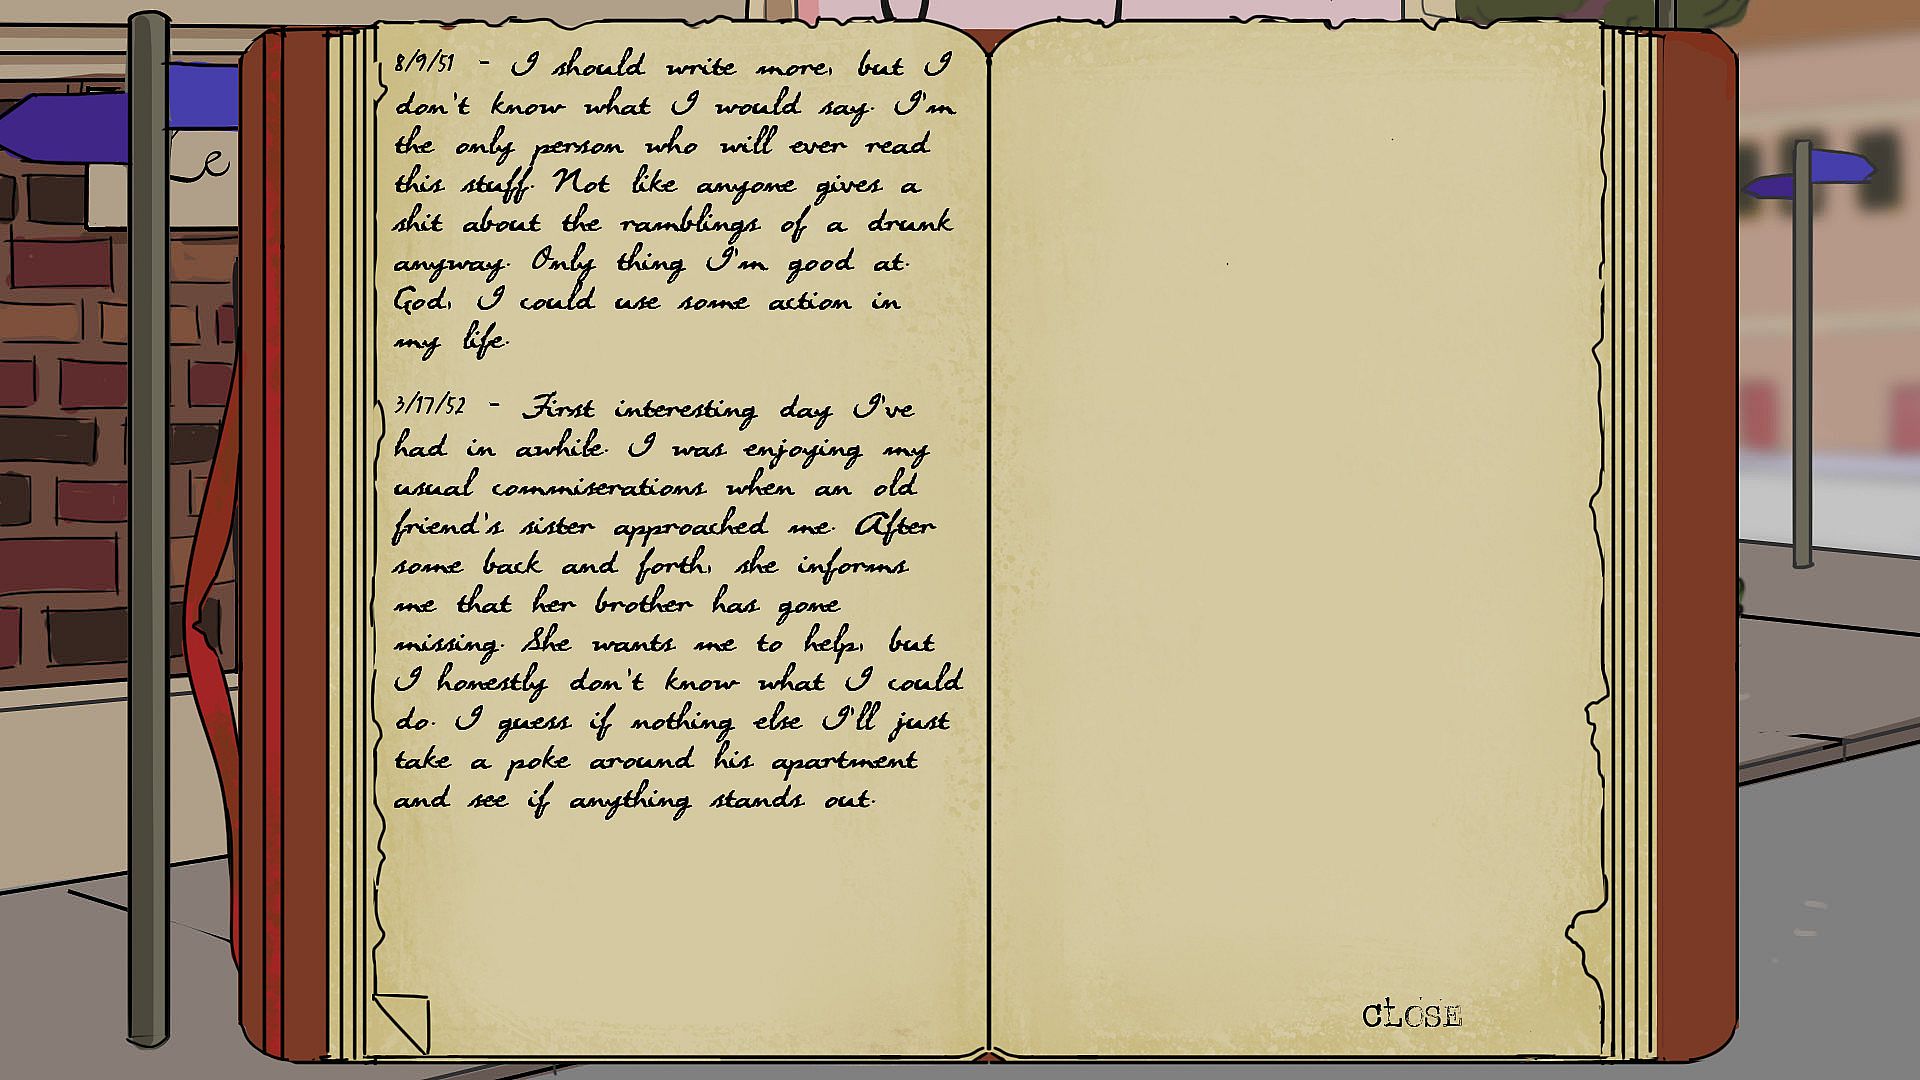 Le
8/9/51 - I should write more, but I
don't know what I would say. I'm
the only person who will ever read
this stuff. Not like anyone gives a
shit about the ramblings of a drunk
anyway. Only thing I'm good at.
God, I could use some action in
my life.
3/17/52 - First interesting day I've
had in awhile. I was enjoying my
usual commiserations when an old
friend's sister approached me. After
some back and forth, she informs
me that her brother has gone
missing. She wants me to help, but
I honestly don't know what I could
do. I guess if nothing else I'll just
take a poke around his apartment
and see if anything stands out.
CLOSE